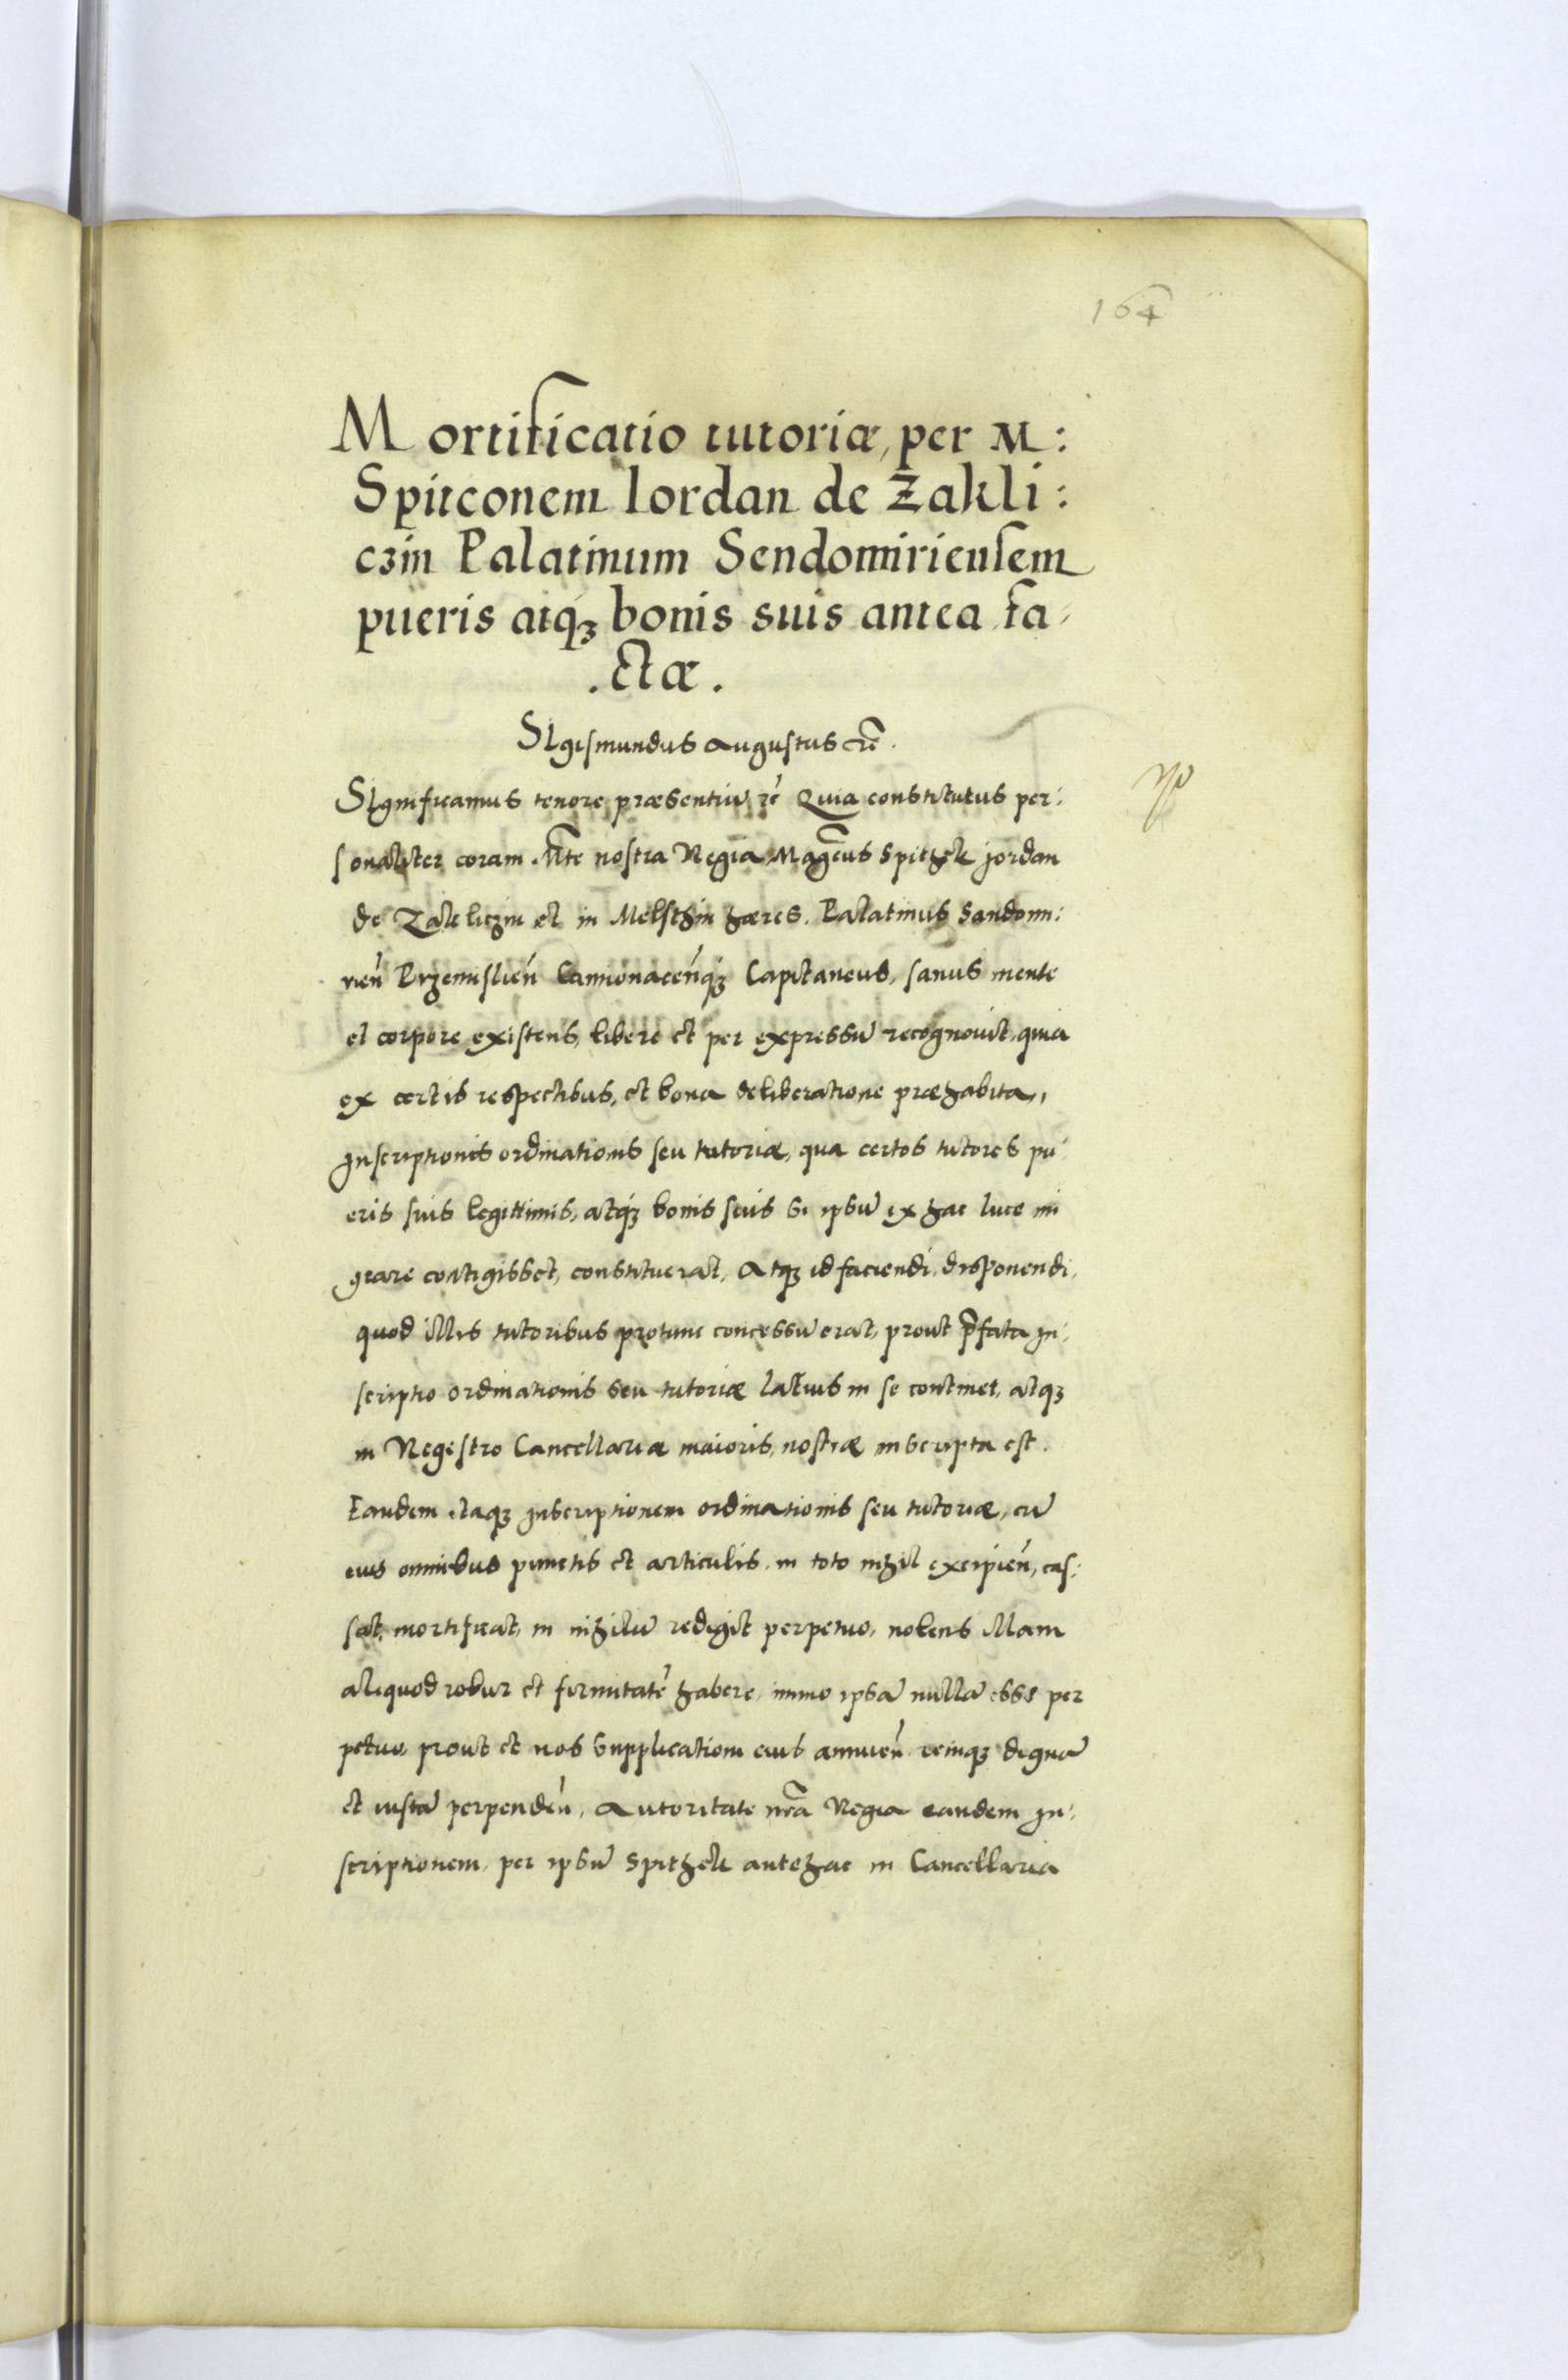 164
Mortificatio tutoriæ, per M:
Spitconem Iordan de Zakli:
czin Palatinum Sendomiriensem
pueris atq₃ bonis suis antea fa-
.ctæ.
SIgismundus Augustus etc̃.
SIgnificamus tenore præsentiũ etc̃ Quia constitutus per:
sonaliter coram M̃te nostra Regia Mag̃cus Spithek Jordan
de Zakliczin et in Melsthin hæres. Palatinus Sandomi:
rien̄ Przemislien̄ Camionacen̄q₃ Capitaneus, sanus mente
et corpore existens, libere et per expressũ recognovit, quia
ex certis respectibus, et bona deliberatione præhabita,
Inscriptionis ordinationis seu tutoriæ, qua certos tutores pu
eris suis legittimis, atq₃ bonis suis si ipsũ ex hac luce mi
grare contigisset, constituerat, Atq₃ id faciendi, disponendi,
quod illis tutoribus protunc concessũ erat, prout p̃fata In:
scriptio ordinationis seu tutoriæ latius in se continet, atq₃
in Regestro Cancellariæ maioris, nostræ inscripta est.
Eandem itaq₃ Inscriptionem ordinationis seu tutoriæ, cũ
eius omnibus punctis et articulis, in toto nihil excipien̄, cas:
sat, mortificat, in nihilũ redigit perpetuo, nolens illam
aliquod robur et firmitatẽ habere, immo ipsã nullã esse per
petuo, prout et nos supplicationi eius annuen̄ remq₃ dignã
et iustã perpenden̄, Autoritate nr̃a Regia eandem In:
scriptionem, per ipsũ Spithek antehac in Cancellaria